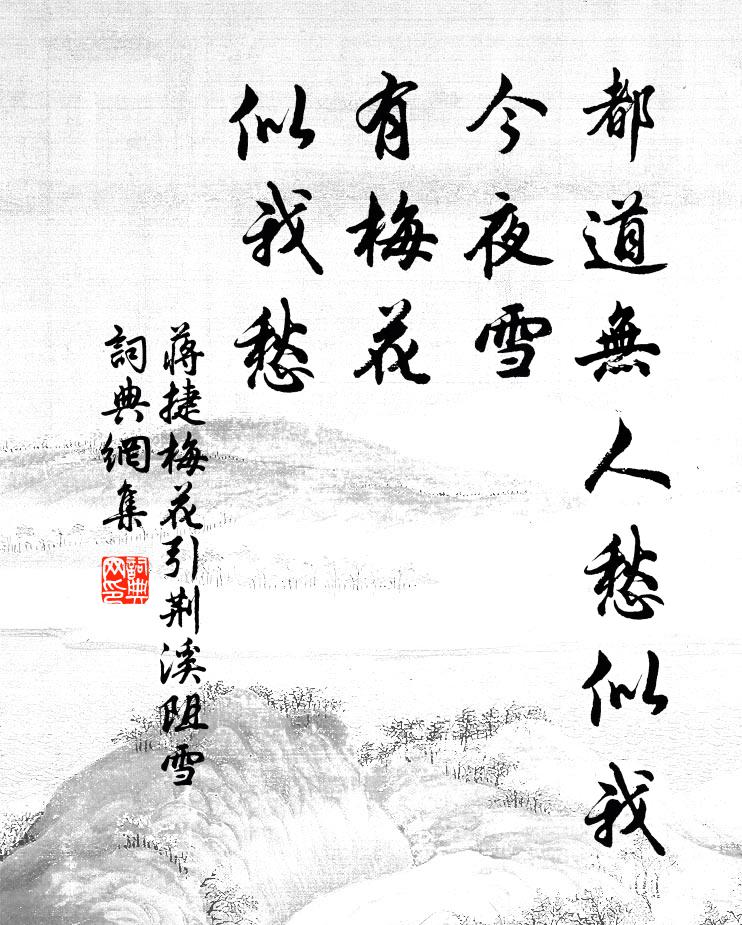 都道無人愁似我
今夜雪
有梅花
似我愁
蔣捷梅花引荆溪阻雪
詞典網集
詞典
网印